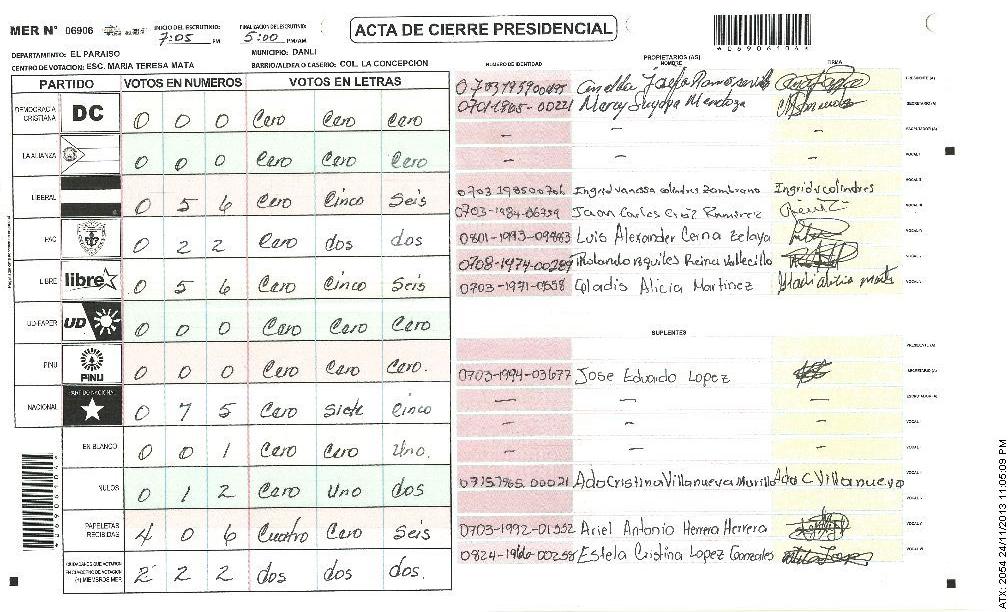 MER Nº 06906
INICIO DEL ESCRUTINIO: 7:05 PM
FINALIZACION DEL ESCRUTINIO: 5:00 PM/AM
ACTA DE CIERRE PRESIDENCIAL
DEPARTAMENTO: EL PARAISO
MUNICIPIO: DANLI
CENTRO DE VOTACION: ESC. MARIA TERESA MATA
BARRIO/ALDEA O CASERIO: COL. LA CONCEPCION
PARTIDO VOTOS EN NUMEROS VOTOS EN LETRAS
DEMOCRACIA CRISTIANA DC 0 0 0 Cero Cero Cero
LA ALIANZA 0 0 0 Cero Cero Cero
LIBERAL 0 5 6 Cero Cinco Seis
PAC 0 2 2 Cero dos dos
LIBRE libre 0 5 6 Cero Cinco Seis
UD-FAPER UD 0 0 0 Cero Cero Cero
PINU PINU 0 0 0 Cero Cero Cero.
NACIONAL PARTIDO NACIONAL 0 7 5 Cero Siete Cinco
EN BLANCO 0 0 1 Cero Cero Uno.
NULOS 0 1 2 Cero Uno dos
PAPELETAS RECIBIDAS 4 0 6 Cuatro Cero Seis
CIUDADANOS QUE VOTARON EN CUADERNO DE VOTACION (+) MIEMBROS MER 2 2 2 dos dos dos.
PROPIETARIOS (AS)
NUMERO DE IDENTIDAD NOMBRE FIRMA
PRESIDENTE (A)
Mercy Suyapa Mendoza SECRETARIO (A)
– – – ESCRUTADOR (A)
– – – VOCAL I
Ingrid vanessa colindres Zambrano Ingrid v colindres VOCAL
0703-1984-06759 Juan Carlos Cruz Ramirez VOCAL
Luis Alexander Cerna Zelaya VOCAL
0708-1974-00289 Rolando Aquiles Reina Vallecillo VOCAL
0703-1971-0558 Gladis Alicia Martinez VOCAL
SUPLENTES
PRESIDENTE (A)
0703-1994-03677 Jose Eduardo Lopez SECRETARIO (A)
– – – ESCRUTADOR (A)
– – – VOCAL
– – – VOCAL
Ada Cristina Villanueva Murillo Ada C Villanueva VOCAL
0703-1992-01552 Ariel Antonio Herrera Herrera VOCAL
Estela Cristina Lopez Gonzales VOCAL
ATX: 2054 24/11/2013 11:05:09 PM